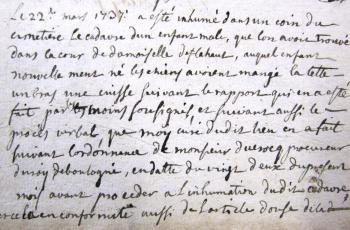 Le 22e mars 1737 a esté inhumé dans un coin du
cimetiere Le cadavre d'un enfant male, que l'on avoit trouvé
dans la cour de damoiselle auquel enfant
nouvellement né les chiens avoient mangé la tette
un bras une cuisse suivant le rapport qui en a esté
fait par les moins soussignés, et suivant aussi le
proces verbal que moy curé dudit lieu en a fait
suivant l'ordonnance de monsieur procureur
du roy de boulogne, en datte du vingt deux du present
mois avant proceder a l'inhumation dudit cadavre
en conformité aussi de l'article douse de la